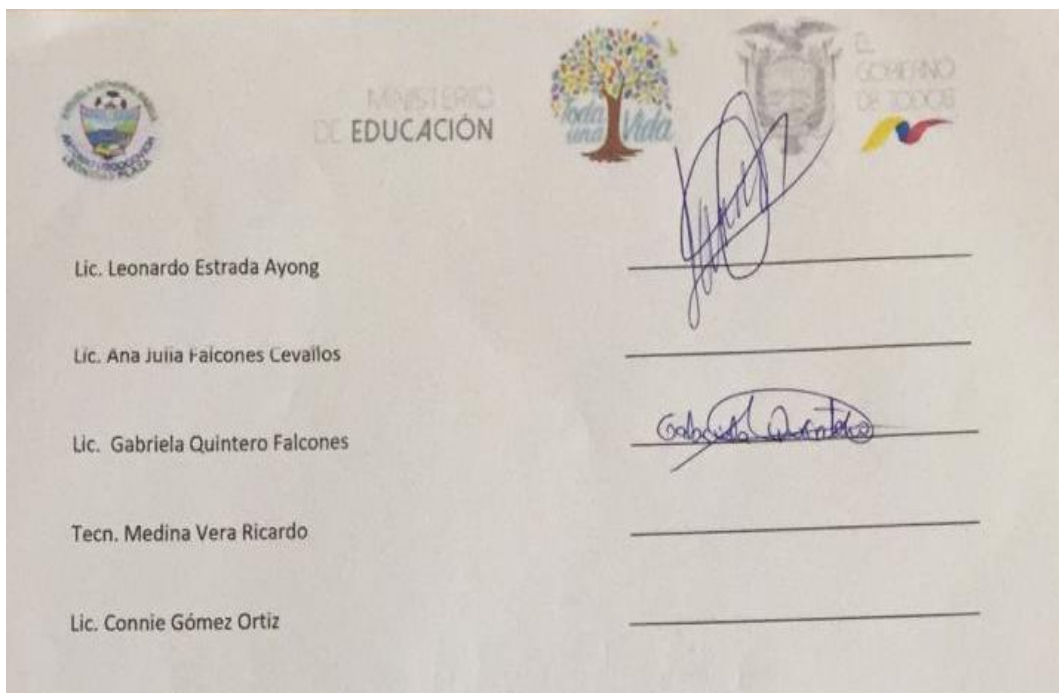 MINISTERIO
DE EDUCACIÓN
Toda
una Vida
EL
GOBIERNO
DE TODOS
Lic. Leonardo Estrada Ayong
Lic. Ana Julia Falcones Cevallos
Lic. Gabriela Quintero Falcones
Gabriela Quintero
Tecn. Medina Vera Ricardo
Lic. Connie Gómez Ortiz